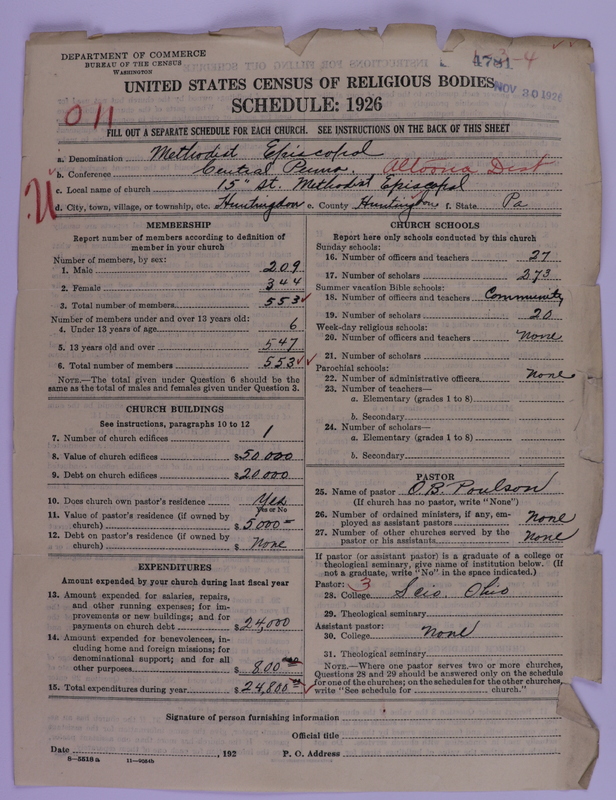 DEPARTMENT OF COMMERCE
BUREAU OF THE CENSUS
WASHINGTON
4781
4
NOV 30 1926
UNITED STATES CENSUS OF RELIGIOUS BODIES
SCHEDULE: 1926
011
FILL OUT A SEPARATE SCHEDULE FOR EACH CHURCH. SEE INSTRUCTIONS ON THE BACK OF THIS SHEET
a. Denomination Methodist Episcopal
b. Conference Central Penna. Altoona Dist
c. Local name of church 15" St. Methodist Episcopal
U
d. City, town, village, or township, etc. Huntingdon e. County Huntingdon f. State Pa
MEMBERSHIP
Report number of members according to definition of
member in your church
Number of members, by sex:
1. Male 209
2. Female 344
3. Total number of members 553
Number of members under and over 13 years old:
4. Under 13 years of age 6
5. 13 years old and over 547
6. Total number of members 553
NOTE.—The total given under Question 6 should be
the same as the total of males and females given under Question 3.
CHURCH BUILDINGS
See instructions, paragraphs 10 to 12
7. Number of church edifices 1
8. Value of church edifices $50,000
9. Debt on church edifices $20,000
10. Does church own pastor's residence Yes
Yes or No
11. Value of pastor's residence (if owned by
church) $5000
12. Debt on pastor's residence (if owned by
church) $ None
EXPENDITURES
Amount expended by your church during last fiscal year
13. Amount expended for salaries, repairs,
and other running expenses; for im-
provements or new buildings; and for
payments on church debt $24,000
14. Amount expended for benevolences, in-
cluding home and foreign missions; for
denominational support; and for all
other purposes $800
15. Total expenditures during year $24,800
CHURCH SCHOOLS
Report here only schools conducted by this church
Sunday schools:
16. Number of officers and teachers 27
17. Number of scholars 273
Summer vacation Bible schools:
18. Number of officers and teachers Community
19. Number of scholars 20
Week-day religious schools:
20. Number of officers and teachers None
21. Number of scholars
Parochial schools:
22. Number of administrative officers None
23. Number of teachers—
a. Elementary (grades 1 to 8)
b. Secondary
24. Number of scholars—
a. Elementary (grades 1 to 8)
b. Secondary
PASTOR
25. Name of pastor O. B. Poulson
(If church has no pastor, write "None")
26. Number of ordained ministers, if any, em-
ployed as assistant pastors None
27. Number of other churches served by the
pastor or his assistants None
If pastor (or assistant pastor) is a graduate of a college or
theological seminary, give name of institution below. (If
not a graduate, write "No" in the space indicated.)
Pastor: 3
28. College Scio, Ohio
29. Theological seminary
Assistant pastor:
30. College None
31. Theological seminary
NOTE.—Where one pastor serves two or more churches,
Questions 28 and 29 should be answered only on the schedule
for one of the churches; on the schedules for the other churches,
write "See schedule for church."
Signature of person furnishing information
Official title
Date , 192 P. O. Address
8—5518 a 11—9084b